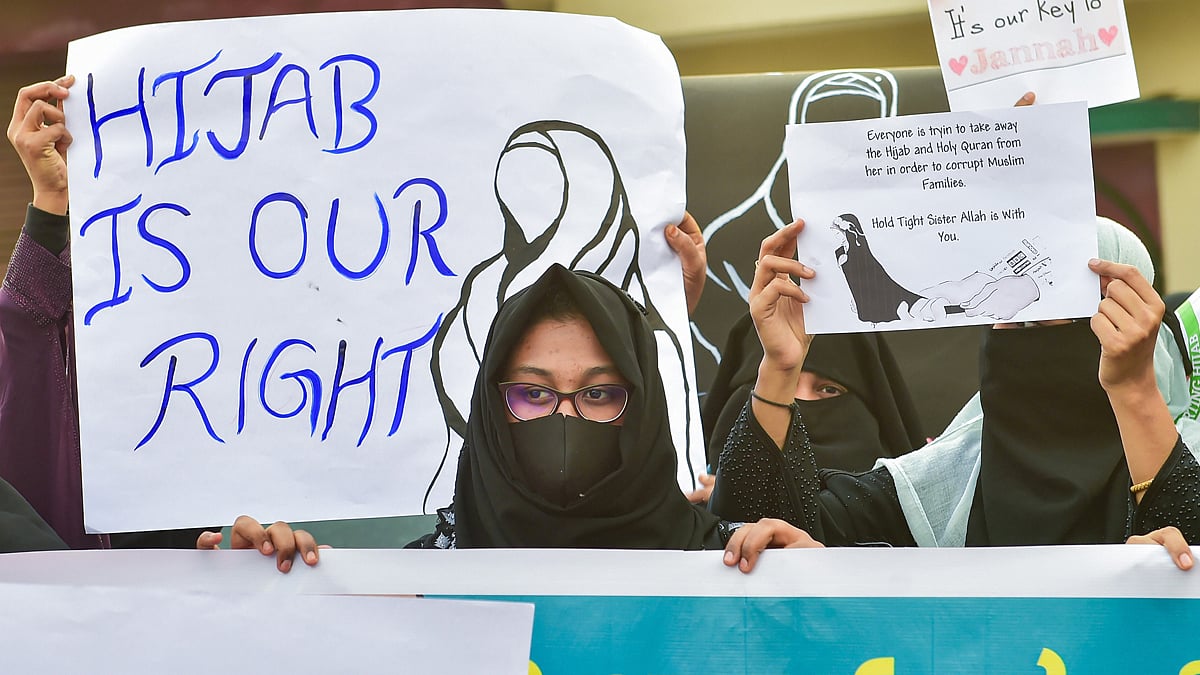 HIJAB
IS OUR
RIGHT
It's our Key to
Jannah
Everyone is tryin to take away
the Hijab and Holy Quran from
her in order to corrupt Muslim
Families.
Hold Tight Sister Allah is With
You.
HIJAB